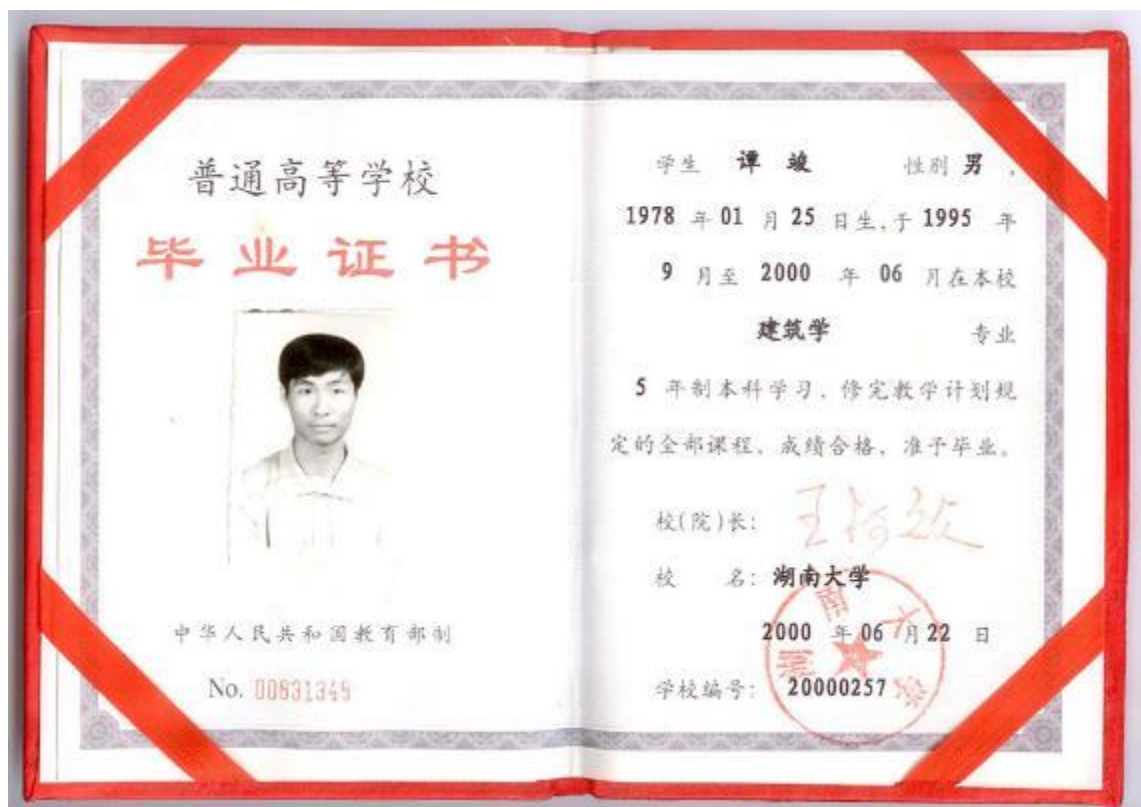 普通高等学校
毕业证书
中华人民共和国教育部制
No. 00831349
学生 谭竣 性别 男,
1978 年 01 月 25 日生,于 1995 年
9 月至 2000 年 06 月在本校
建筑学 专业
5 年制本科学习,修完教学计划规
定的全部课程、成绩合格,准予毕业。
校(院)长:
校 名: 湖南大学
2000 年 06 月 22 日
学校编号: 20000257
湖南大学